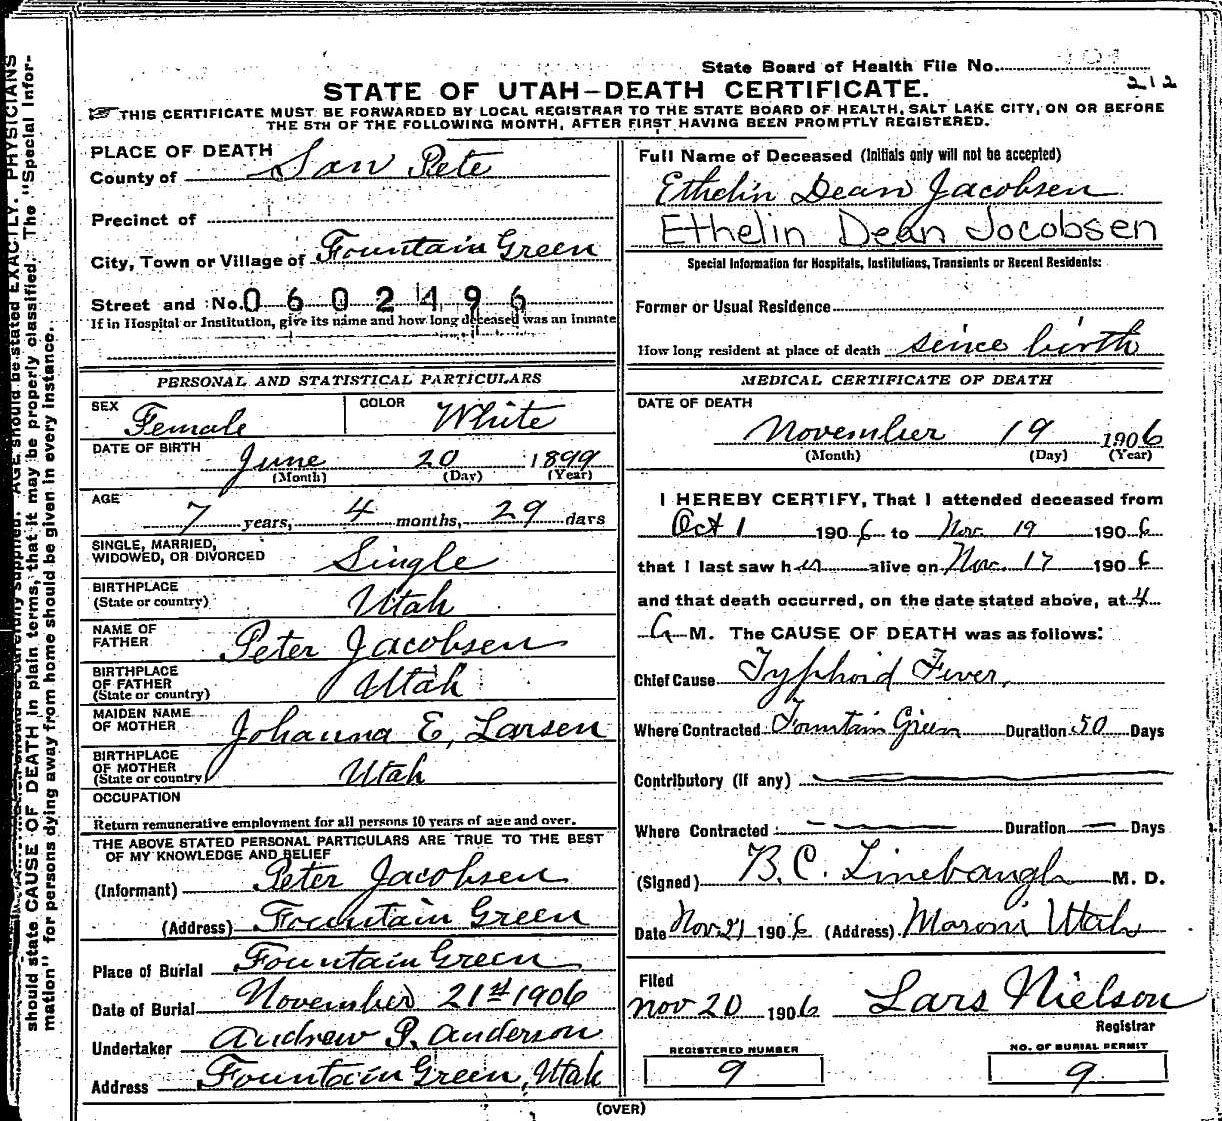 State Board of Health File No.
212
STATE OF UTAH—DEATH CERTIFICATE.
THIS CERTIFICATE MUST BE FORWARDED BY LOCAL REGISTRAR TO THE STATE BOARD OF HEALTH, SALT LAKE CITY, ON OR BEFORE
THE 5TH OF THE FOLLOWING MONTH, AFTER FIRST HAVING BEEN PROMPTLY REGISTERED.
PLACE OF DEATH
County of San Pete
Precinct of
City, Town or Village of Fountain Green
Street and No. 0602496
If in Hospital or Institution, give its name and how long deceased was an inmate
PERSONAL AND STATISTICAL PARTICULARS
SEX Female COLOR White
DATE OF BIRTH June 20 1899
(Month) (Day) (Year)
AGE 7 years, 4 months, 29 days
SINGLE, MARRIED,
WIDOWED, OR DIVORCED Single
BIRTHPLACE
(State or country) Utah
NAME OF
FATHER Peter Jacobsen
BIRTHPLACE
OF FATHER
(State or country) Utah
MAIDEN NAME
OF MOTHER Johanna E, Larsen
BIRTHPLACE
OF MOTHER
(State or country) Utah
OCCUPATION
Return remunerative employment for all persons 10 years of age and over.
THE ABOVE STATED PERSONAL PARTICULARS ARE TRUE TO THE BEST
OF MY KNOWLEDGE AND BELIEF
(Informant) Peter Jacobsen
(Address) Fountain Green
Place of Burial Fountain Green
Date of Burial November 21st 1906
Undertaker Andrew P. Anderson
Address Fountain Green, Utah
Full Name of Deceased (Initials only will not be accepted)
Ethelin Dean Jacobsen
Ethelin Dean Jocobsen
Special Information for Hospitals, Institutions, Transients or Recent Residents:
Former or Usual Residence
How long resident at place of death since birth
MEDICAL CERTIFICATE OF DEATH
DATE OF DEATH
November 19 1906
(Month) (Day) (Year)
I HEREBY CERTIFY, That I attended deceased from
Oct 1 1906 to Nov. 19 1906
that I last saw her alive on Nov. 17 1906
and that death occurred, on the date stated above, at 4
A M. The CAUSE OF DEATH was as follows:
Chief Cause Typhoid Fever,
Where Contracted Fountain Green Duration 50 Days
Contributory (if any)
Where Contracted Duration — Days
(Signed) B. C. Linebaugh M. D.
Date Nov. 21 1906 (Address) Moroni Utah
Filed
Nov 20 1906 Lars Nielson
Registrar
REGISTERED NUMBER
9
NO. OF BURIAL PERMIT
9
(OVER)
should state CAUSE OF DEATH in plain terms, that it may be properly classified. The "Special Infor-
mation" for persons dying away from home should be given in every instance.